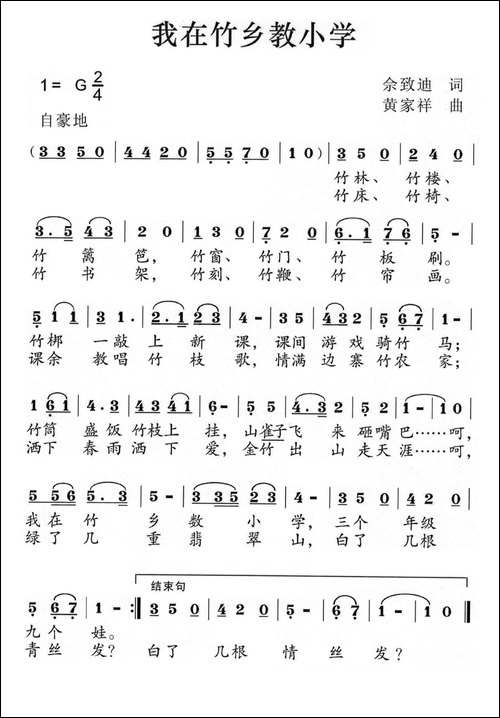 我在竹乡教小学
1= G 2/4
佘致迪 词
自豪地
黄家祥 曲
(3 3 5 0 | 4 4 2 0 | 5 5 7 0 | 1 0) | 3 5 0 | 2 4 0 |
竹林、 竹楼、
竹床、 竹椅、
3. 5 4 3 | 2 0 | 1 3 0 | 7 2 0 | 6. 1 7 6 | 5 - |
竹 篱 笆, 竹窗、 竹门、 竹 板 刷。
竹 书 架, 竹刻、 竹鞭、 竹 帘 画。
5 1 1 | 3 1. | 2. 1 2 3 | 4 - | 3 5 | 4 3 2 | 5 6 7 | 1 - |
竹梆 一敲 上 新 课, 课间 游 戏 骑竹 马;
课余 教唱 竹 枝 歌, 情满 边 寨 竹农 家;
1 6 1 | 4. 3 | 4 3 4 1 | 6 - | 5 5 | 4. 3 2 | 5 2 | 1 - | 1 0 |
竹筒 盛饭 竹枝上 挂, 山雀子飞 来 砸嘴 巴……呵,
洒下 春雨 洒 下 爱, 金竹 出 山 走天 涯……呵,
5 5 6 | 5. 3 | 1 - | 3 5 3 5 | 2 3 | 4 - | 3 5 0 | 2 4 0 |
我在 竹 乡 教 小 学, 三个 年级
绿了 几 重 翡 翠 山, 白了 几根
结束句
5 6 7 | 1 - :‖ 3 5 0 | 4 2 0 | 5 - | 6 7 | 1 - | 1 0 ‖
九个 娃。
青丝 发? 白了 几根 情 丝 发?